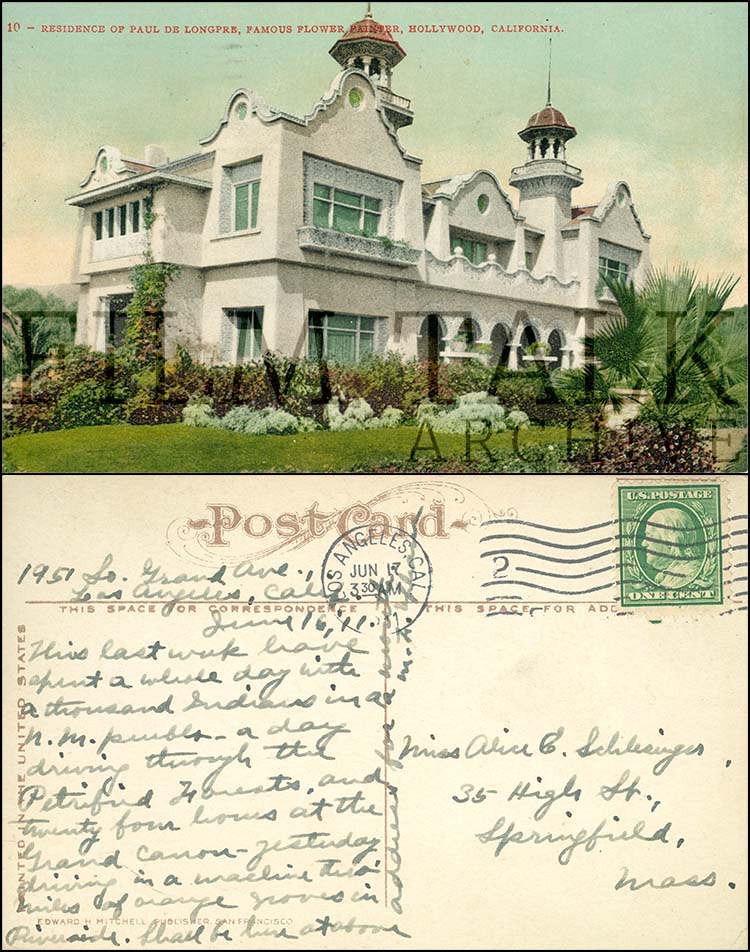 10 – RESIDENCE OF PAUL DE LONGPRE, FAMOUS FLOWER PAINTER, HOLLYWOOD, CALIFORNIA.
FILM TALK
ARCHIVE
Post Card
U.S. POSTAGE
ONE CENT
LOS ANGELES, CAL.
JUN 17
3 30 AM
2
THIS SPACE FOR CORRESPONDENCE
THIS SPACE FOR ADD
1951 So. Grand Ave.,
Los Angeles, Cal.
June 16, 11.
This last week have
spent a whole day with
a thousand Indians in a
N.M. pueblo – a day
driving through the
Petrified Forests, and
twenty four hours at the
Grand Canon – yesterday
driving in a machine thro'
miles of orange groves in
Riverside. Shall be here at above
address for
Miss Alice E. Schlesinger,
35 High St.,
Springfield,
Mass.
PRINTED IN THE UNITED STATES
EDWARD H. MITCHELL, PUBLISHER, SAN FRANCISCO